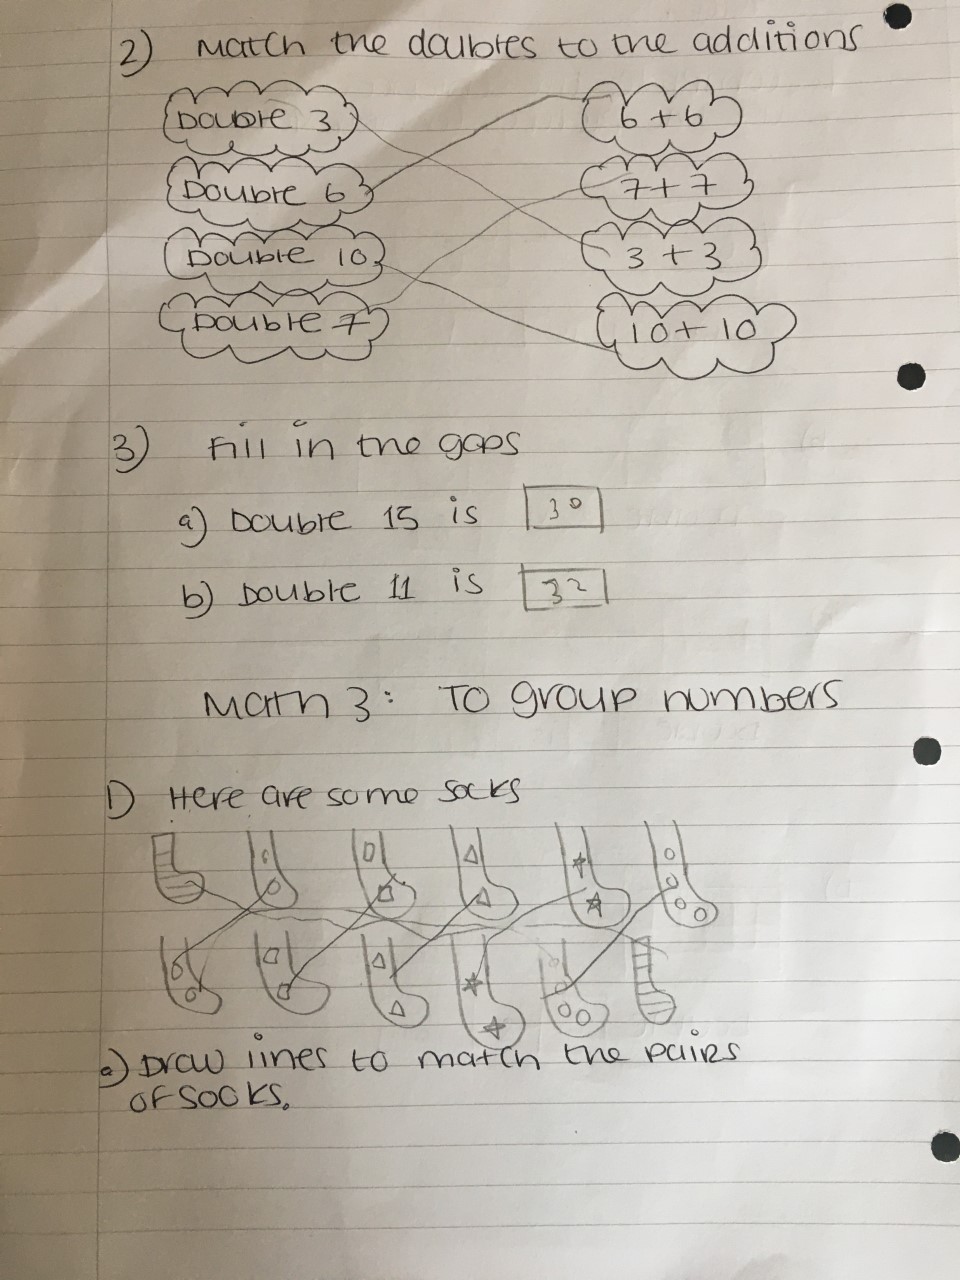 2) Match the doubles to the additions
Double 3 6+6
Double 6 7+7
Double 10 3+3
Double 7 10+10
3) Fill in the gaps
a) Double 15 is 30
b) Double 11 is 32
Math 3: To group numbers
1) Here are some socks
a) Draw lines to match the pairs
of socks.